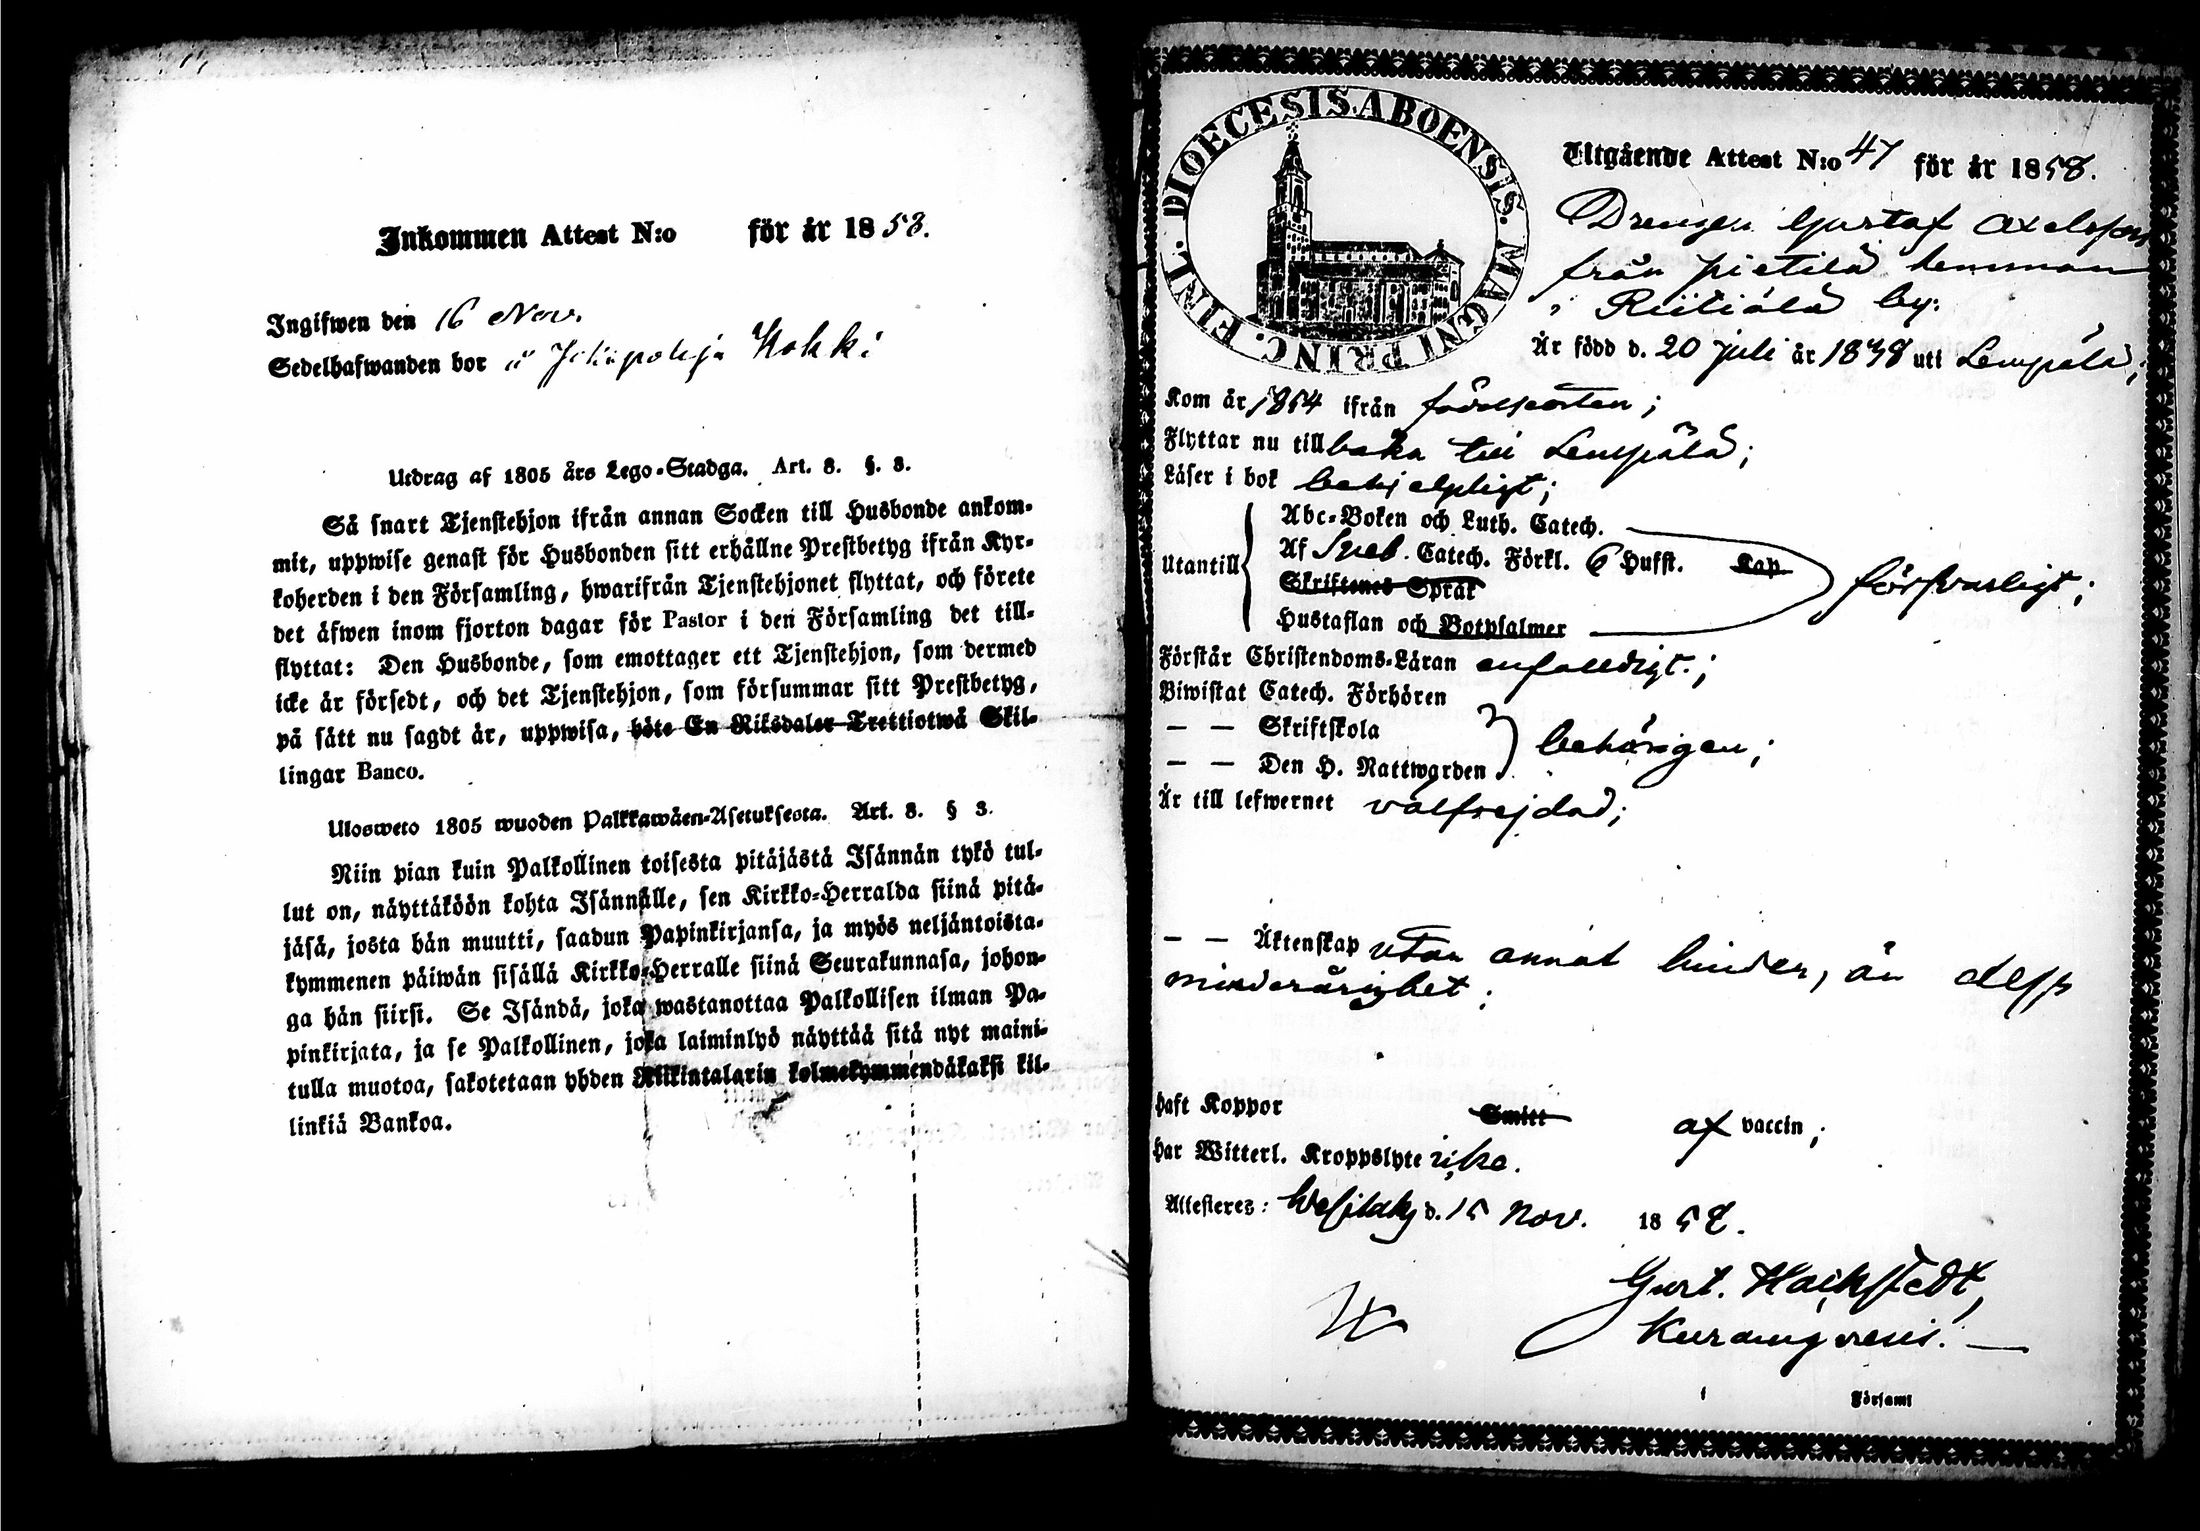 Inkommen Attest N:o för år 1858.
Ingifwen den 16 Nov.
Sedelhafwanden bor i Hokki
Utdrag af 1805 års Lego-Stadga. Art. 8. §. 3.
Så snart Tjenstehjon ifrån annan Socken till Husbonde ankom-
mit, uppwise genast för Husbonden sitt erhållne Prestbetyg ifrån Kyr-
koherden i den Församling, hwarifrån Tjenstehjonet flyttat, och förete
det äfwen inom fjorton dagar för Pastor i den Församling det till-
flyttat: Den Husbonde, som emottager ett Tjenstehjon, som dermed
icke är försedt, och det Tjenstehjon, som försummar sitt Prestbetyg,
på sätt nu sagdt är, uppwisa, böte En Riksdaler Trettiotwå Skil-
lingar Banco.
Ulosweto 1805 wuoden Palkkawäen-Asetuksesta. Art. 8. § 3.
Niin pian kuin Palkollinen toisesta pitäjästä Isännän tykö tul-
lut on, näyttäköön kohta Isännälle, sen Kirkko-Herralda siinä pitä-
jäsä, josta hän muutti, saadun Papinkirjansa, ja myös neljäntoista-
kymmenen päiwän sisällä Kirkko-Herralle siinä Seurakunnasa, johon-
ga hän siirsi. Se Isändä, joka wastanottaa Palkollisen ilman Pa-
pinkirjata, ja se Palkollinen, joka laiminlyö näyttää sitä nyt maini-
tulla muotoa, sakotetaan yhden Riikintalarin kolmekymmendäkaksi kil-
linkiä Bankoa.
DIOECESIS ABOENSIS. MAGNI PRINC. FINL.
Utgående Attest N:o 47 för år 1858.
Drengen Gustaf Axelsson
från Pietilä hemman
i Riitiälä by.
Är född d. 20 Juli år 1838 uti Lempälä;
Kom år 1854 ifrån födelseorten;
Flyttar nu till baka till Lempälä;
Läser i bok behjelpligt;
Utantill
Abc-Boken och Luth. Catech.
Af Sveb. Catech. Förkl. 6 Hufst. Kap
Skriftenes Språk
försvarligt;
Hustaflan och Botpsalmer
Förstår Christendoms-Läran enfalldigt.;
Biwistat Catech. Förhören
— — Skriftskola
behörigen;
— — Den H. Nattwarden
Är till lefwernet välfrejdad;
— — Äktenskap utan annat hinder, än dess
minderårighet;
Haft Koppor Smitt af vaccin;
Har Witterl. Kroppslyte icke.
Attesteres: Wesilaks d. 15 Nov. 1858.
Gust. Hackstedt,
i Församl